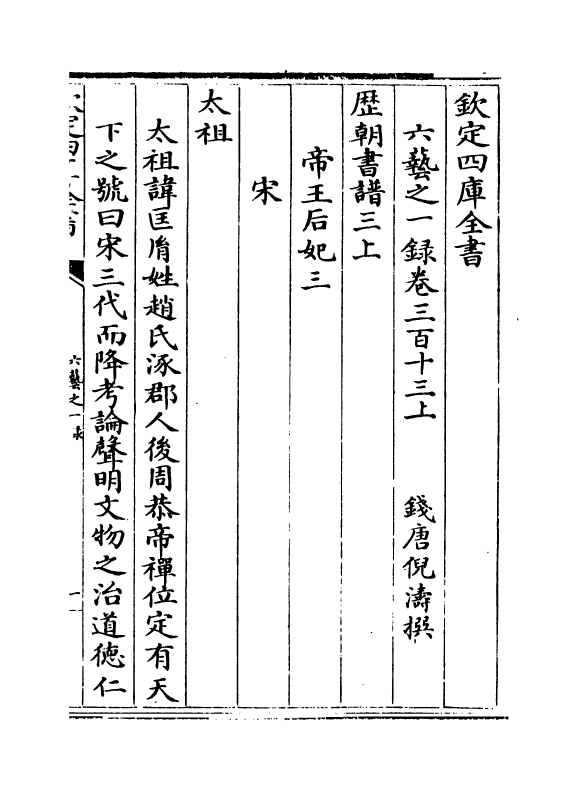 欽定四庫全書
六藝之一録卷三百十三上
錢唐倪濤撰
歷朝書譜三上
帝王后妃三
宋
太祖
太祖諱匡胤姓趙氏涿郡人後周恭帝禪位定有天
下之號曰宋三代而降考論聲明文物之治道徳仁
六藝之一录
一